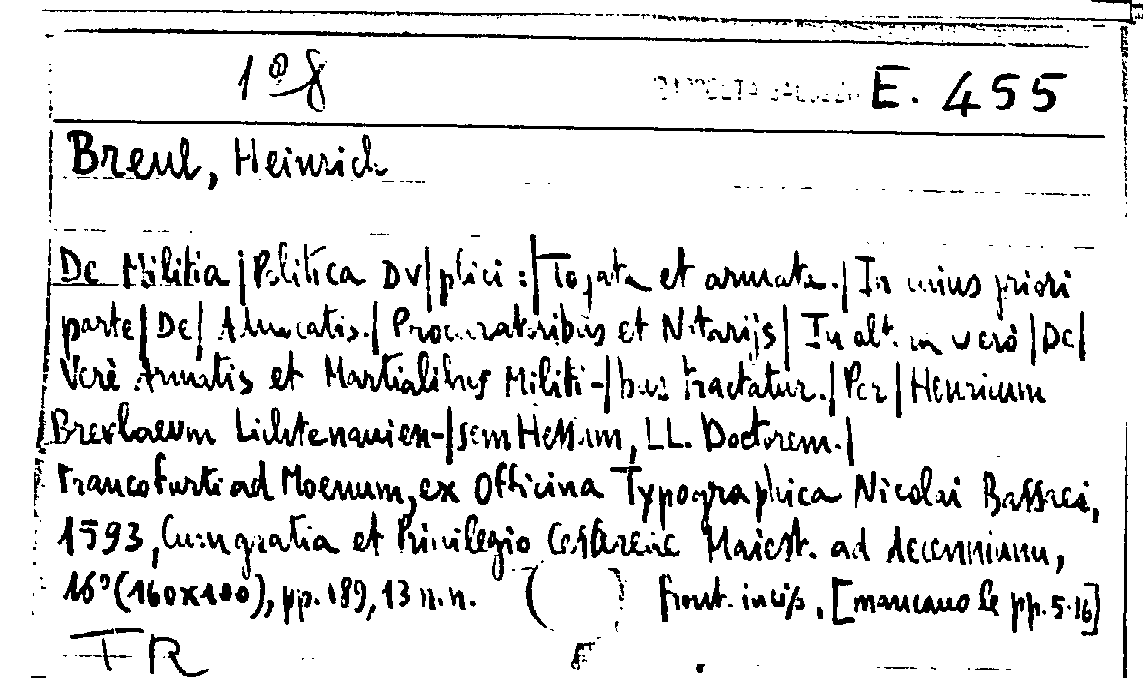 E. 455
Breul, Heinrich
De Militia | Politica Dv|plici : | Togata et armata. | In cuius priori
parte | De | Aduocatis. | Procuratoribus et Notarijs | In alt. verò | De |
Verè Armatis et Martialibus Militi-|bus tractatur. | Per | Henricum
Lichtenauien-|sem Hessum, LL. Doctorem. |
Francofurti ad Moenum, ex Officina Typographica Nicolai Bassaei,
1593, Cum gratia et Privilegio Caesareae Maiest. ad decennium,
16° (160x100), pp. 189, 13 n.n. front. incis. [mancano le pp. 5-16]
FR